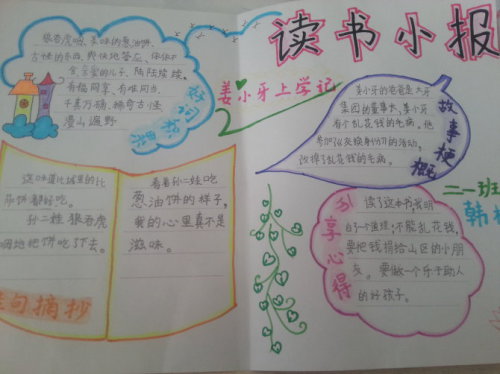 读书小报
姜小牙上学记
狼吞虎咽、美味的葱油饼、
古怪的东西、爽快地答应、
含
陆陆续续、
有福同享、有难同当、
千真万确、稀奇古怪
漫山遍野
好词积累
姜小牙的爸爸是大牙
集团的董事长、姜小牙
有个乱花钱的毛病。他
参加
交换身份的活动,
改掉了乱花钱的毛病。
故事梗概
二一班
韩
这味道比城里的比
萨饼都好吃。
孙二娃狼吞虎
咽地把饼吃了下去。
看着孙二娃吃
葱油饼的样子,
我的心里真不是
滋味。
佳句摘抄
分享心得
读了这本书,我明
白了一个道理:不能乱花钱,
要把钱捐给山区的小朋
友。要做一个乐于助人
的好孩子。